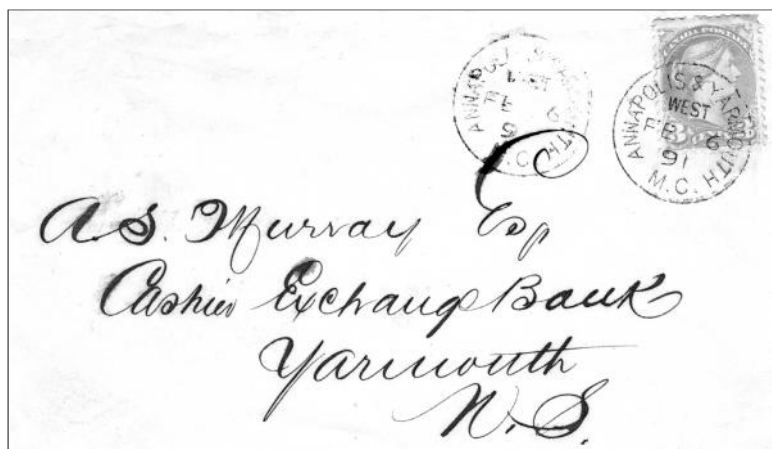 CANADA POSTAGE
ANNAPOLIS & YARMOUTH
WEST
FE 6
91
M.C.
ANNAPOLIS & YARMOUTH
WEST
FE 6
91
M.C.
A.S. Murray Esq
Cashier Exchange Bank
Yarmouth
N.S.